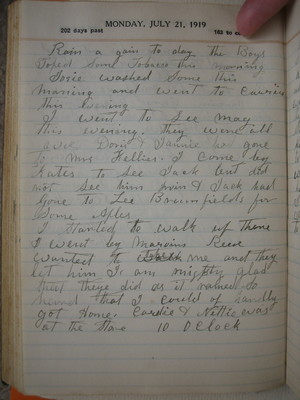 MONDAY, JULY 21, 1919
202 days past 163 to
Rain a gain to day the Boys
Toped Some Tobacco this morning
Sorie washed Some this
morning and went to Carries
this Evening
I went to See May
this evening. they were all
gone
to Mrs Hellier. I come by
Kates to See Jack but did
not See him & Jack had
gone to Lee Brownfields for
Some Aples
I started to walk up there
I went by Marvins Reece
wanted to me and they
let him I am mighty glad
that they did as it rained so
hard that I could of hardly
got Home. Cardie & Nettie was
at the Store 10 OClock